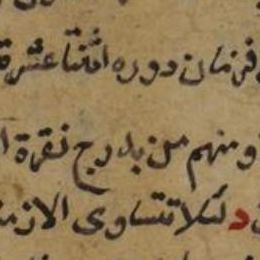 فزمان دوره اثنتا عشرة
ومنهم من يدرج نقرة
لئلا تتساوى الازمنة